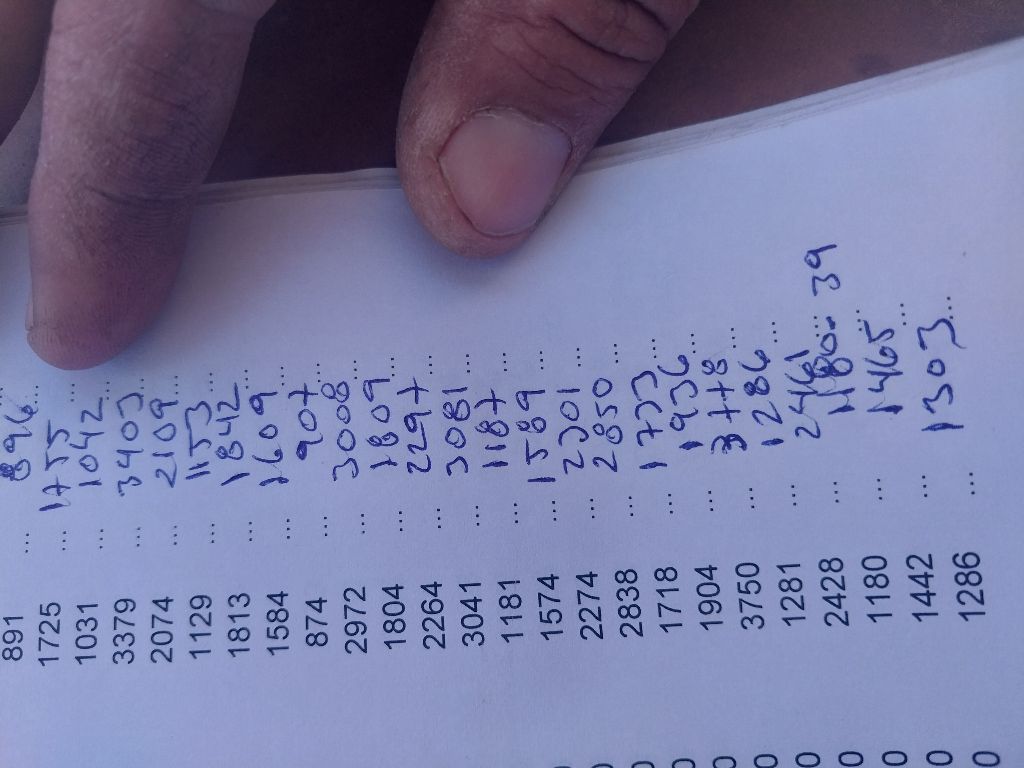 891 ... 896 ...
1725 ... 1755 ...
1031 ... 1042 ...
3379 ... 3403 ...
2074 ... 2109 ...
1129 ... 1153 ...
1813 ... 1842 ...
1584 ... 1609 ...
874 ... 907 ...
2972 ... 3008 ...
1804 ... 1809 ...
2264 ... 2297 ...
3041 ... 3081 ...
1181 ... 1187 ...
0 1574 ... 1589 ...
0 2274 ... 2301 ...
0 2838 ... 2850 ...
0 1718 ... 1733 ...
0 1904 ... 1936 ...
0 3750 ... 3778 ...
0 1281 ... 1286 ...
0 2428 ... 2461 ...
0 1180 ... 1180. 39 ...
0 1442 ... 1465 ...
0 1286 ... 1303 ...